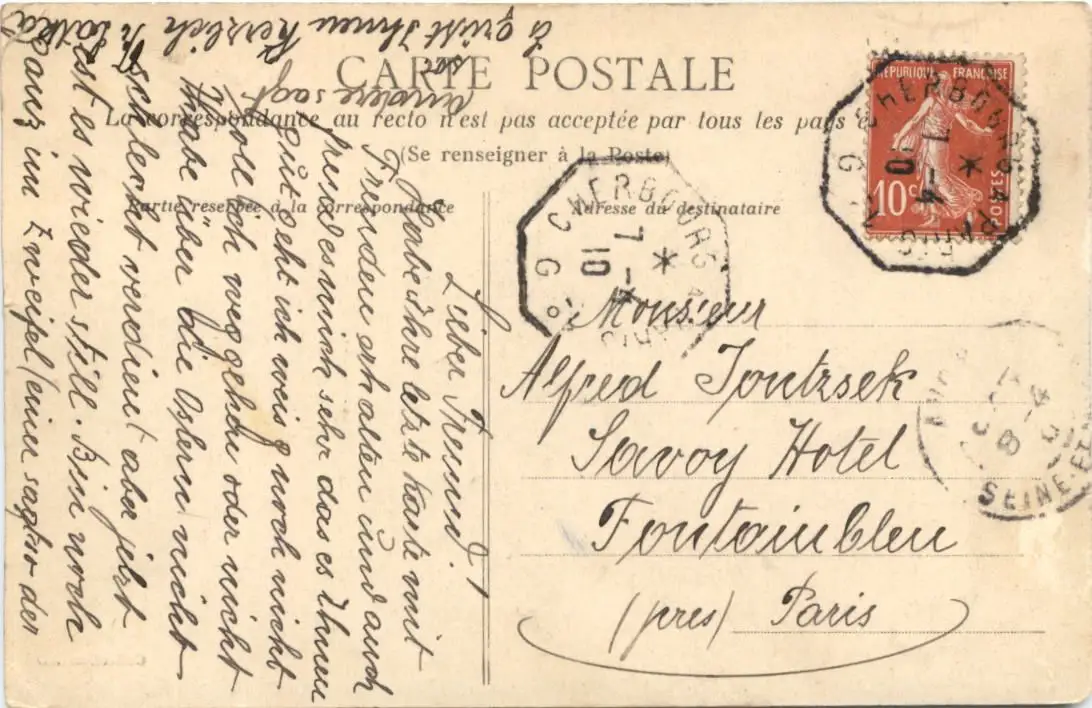 CARTE POSTALE
La correspondance au recto n'est pas acceptée par tous les pays
(Se renseigner à la Poste)
Partie reservée à la correspondance
Adresse du destinataire
RÉPUBLIQUE FRANÇAISE
10c
POSTES
CHERBOURG A PARIS
7-4
10
CHERBOURG A PARIS
7-4
10
8-4
SEINE-ET
Monsieur
Alfred Jontzsek
Savoy Hotel
Fontainbleu
(pres) Paris
Lieber Freund!
Habe Ihre letzte Karte mit
Freuden erhalten und auch
freudes mich sehr das es Ihnen
gut geht ich weis noch nicht
soll ich weggehn oder nicht
Habe über die Ostern nicht
schlecht verdient aber jetzt
ist es wieder still. Bin noch
ganz im Zweifel einer sagt so der
andere sagt
so!
Es grüßt Ihnen herzlich